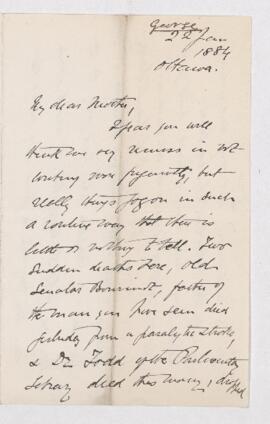 George
22 Jan
1884
Ottawa.
My dear Mother,
I fear you will
think me very remiss in not
writing more frequently, but
really things jog on in such
a routine way that there is
little or nothing to tell. Two
sudden deaths here, old
Senator Bourinot, father of
the man you have seen died
from a paralytic stroke,
& Dr. Todd of the Parliamenty
Library died this morng, dropped